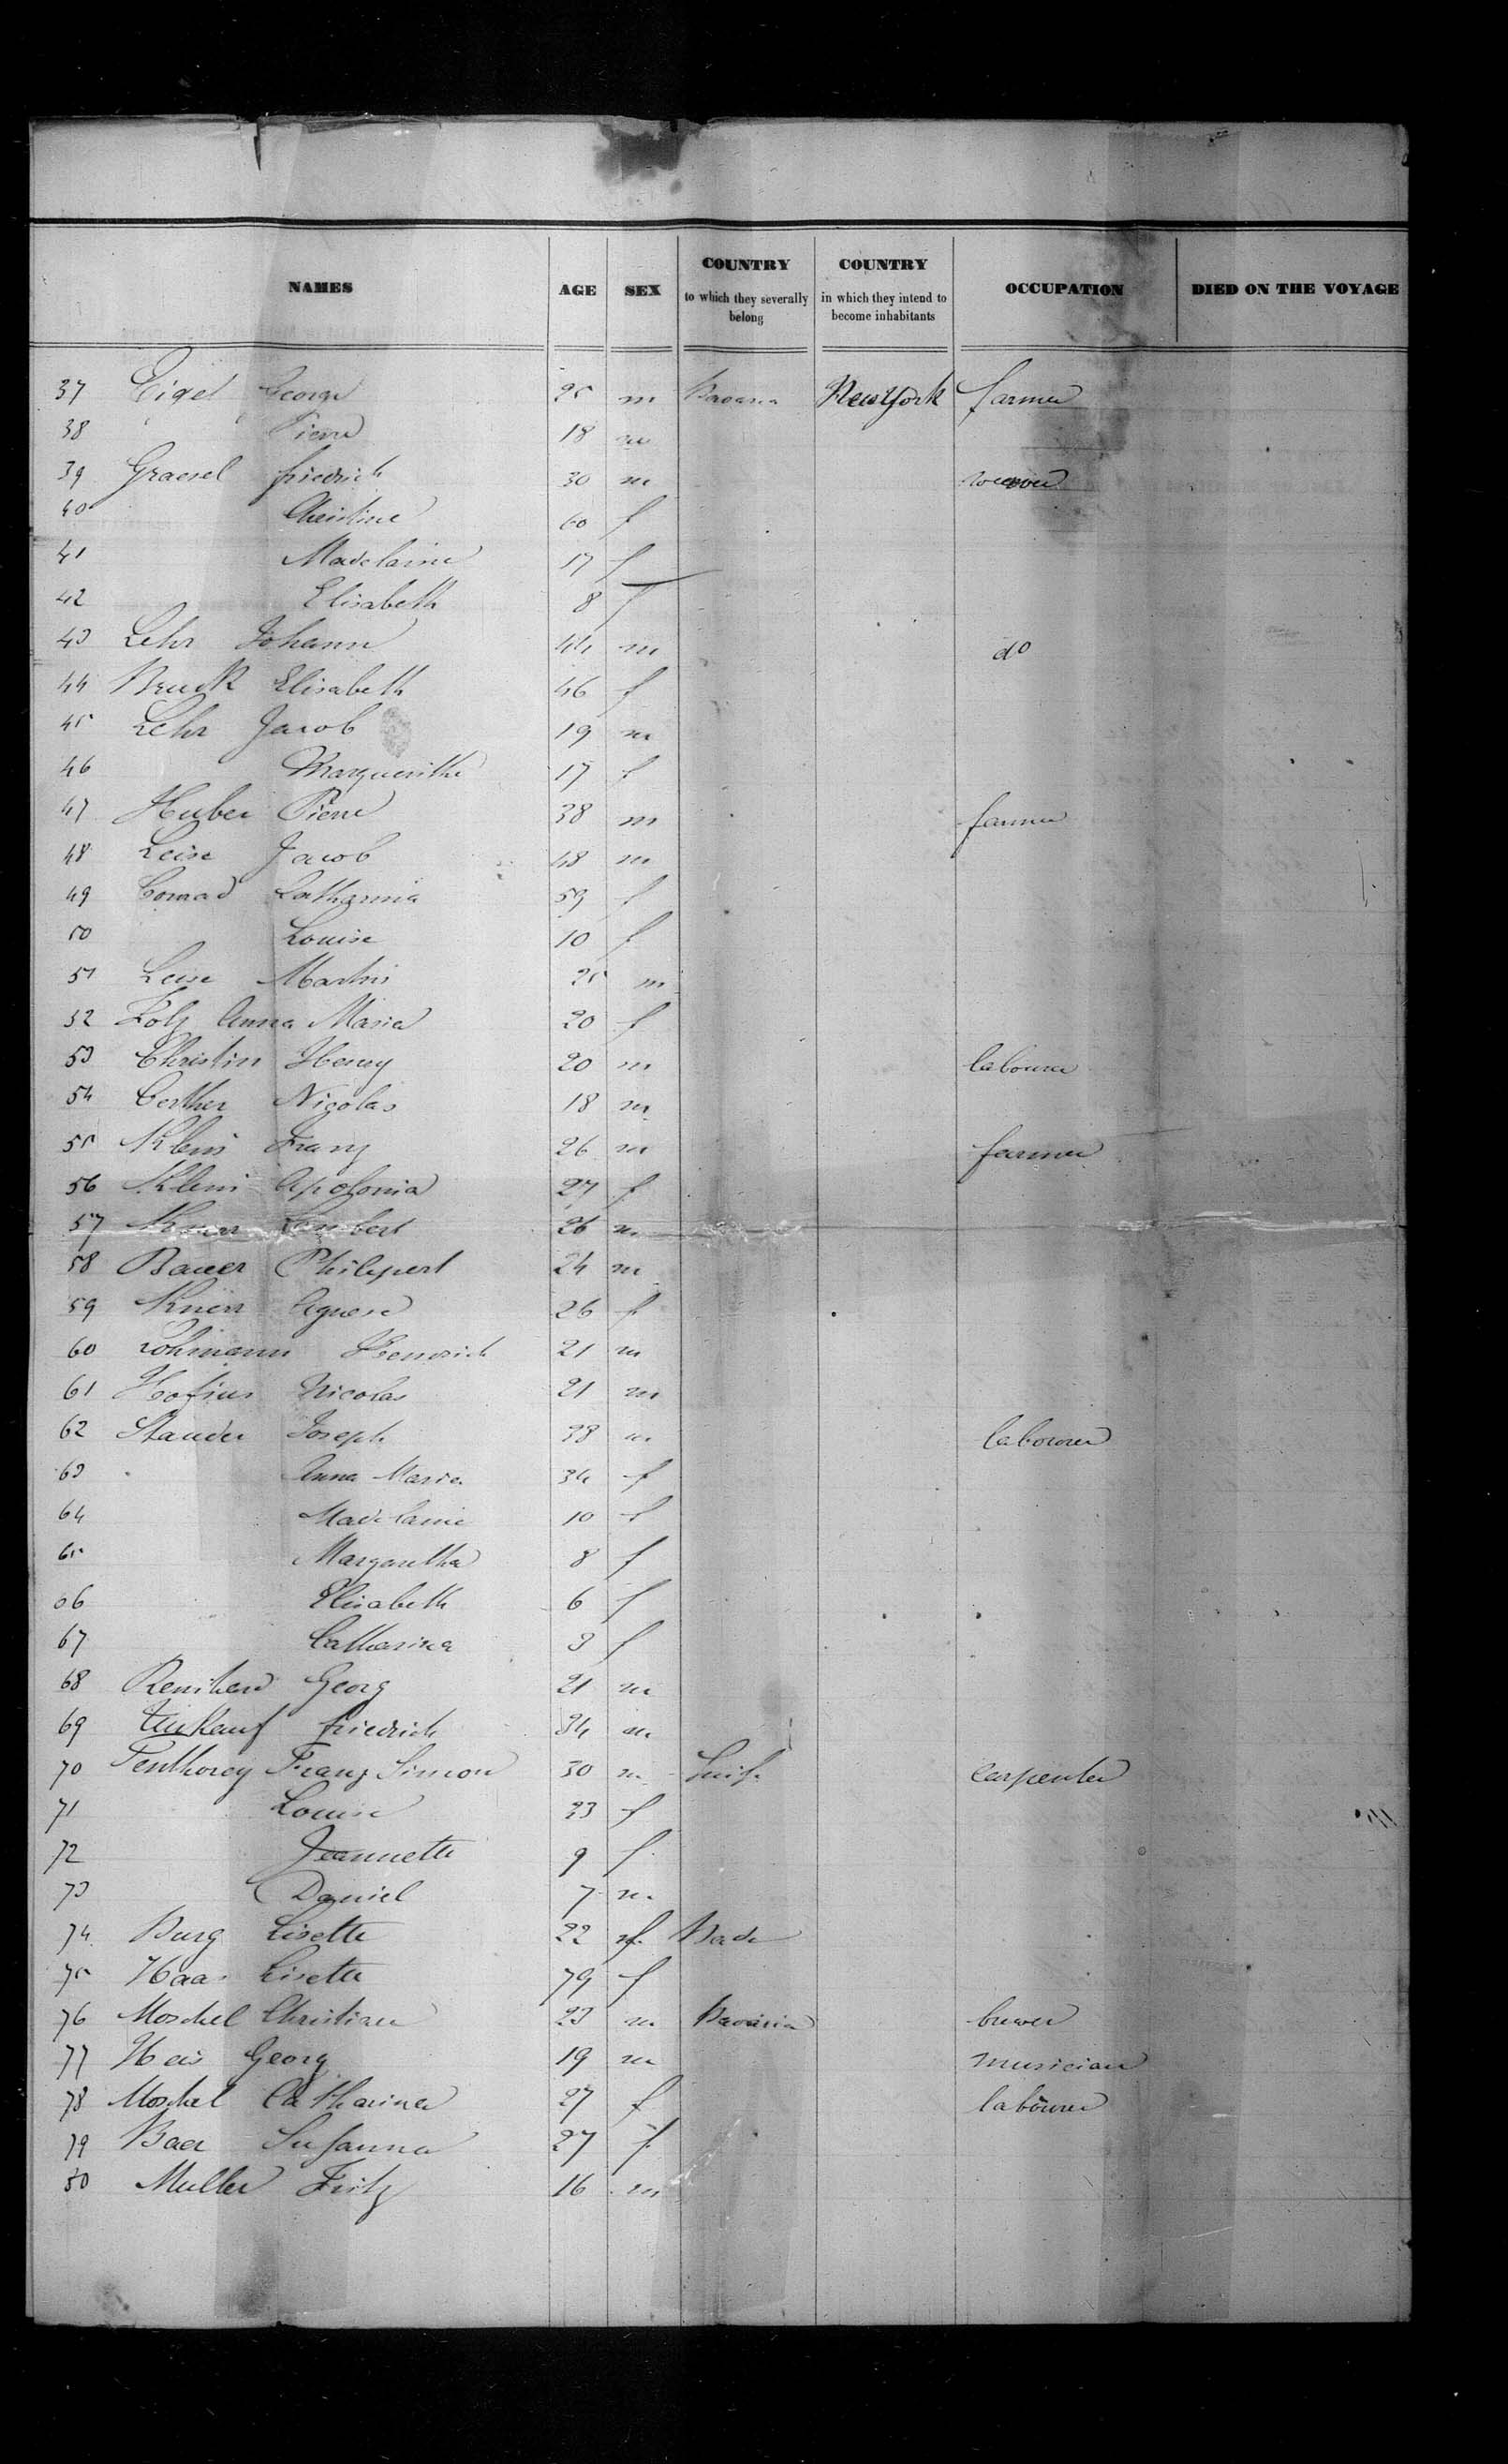 NAMES AGE SEX COUNTRY to which they severally belong COUNTRY in which they intend to become inhabitants OCCUPATION DIED ON THE VOYAGE
37 Eigel George 25 m Bavaria New York farmer
38 " " Pierre 18 m
39 Graesel friedrich 30 m weaver
40 Christine 60 f
41 Madelaine 17 f
42 Elisabeth 8 f
43 Lehr Johann 44 m do
44 Bruck Elisabeth 46 f
45 Lehr Jacob 19 m
46 Marguerithe 17 f
47 Huber Pierre 38 m farmer
48 Leise Jacob 48 m
49 Conrad Catharina 59 f
50 Louise 10 f
51 Leise Martin 25 m
52 Anna Maria 20 f
53 Christin Henry 20 m labourer
54 Certher Nicolas 18 m
55 Klein Franz 26 m farmer
56 Klein Apolonia 27 f
57 Knerr Lambert 26 m
58 Bauer Philippert 24 m
59 Knerr Agnese 26 f
60 Lohmann Heinrich 21 m
61 Hofius Nicolas 21 m
62 Stauder Joseph 38 m labourer
63 Anna Maria 34 f
64 Madelaine 10 f
65 Margaretha 8 f
66 Elisabeth 6 f
67 Catharina 3 f
68 Georg 21 m
69 friedrich 34 m
70 Penthorey Franz Simon 30 m carpenter
71 Louise 33 f
72 Jeannette 9 f
73 Daniel 7 m
74 Burg Lisette 22 f Bade
75 Haas Lisette 79 f
76 Moschel Christian 23 m Bavaria brewer
77 Heis Georg 19 m musician
78 Moschel Catharina 27 f labourer
79 Baer Susanna 27 f
80 Muller Fritz 16 m